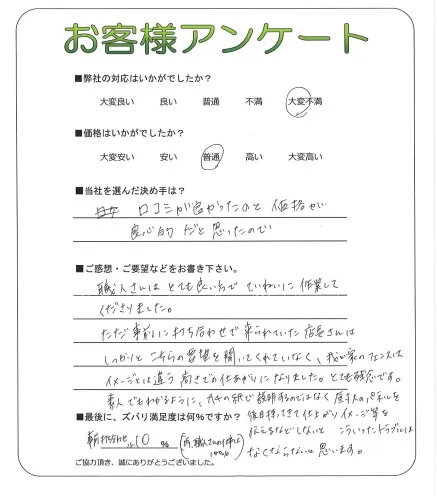 お客様アンケート
■弊社の対応はいかがでしたか？
大変良い 良い 普通 不満 大変不満
■価格はいかがでしたか？
大変安い 安い 普通 高い 大変高い
■当社を選んだ決め手は？
口コミが良かったのと 価格が
良心的 だと思ったので
■ご感想・ご要望などをお書き下さい。
職人さんは とても良い方で ていねいに作業して
くださりました。
ただ事前に打ち合わせで来られていた店長さんは
しっかりと こちらの要望を聞いてくれていなく、我が家のフェンスは
イメージとは違う 高さでの仕あがりになりました。とても残念です。
素人でもわかるように、 の紙で説明するのではなく 原寸大のパネルを
■最後に、ズバリ満足度は何％ですか？
後日持ってきて 仕上がりイメージ等を
伝えるなどしないと こういったトラブルは
なくならないと思います。
打ち合わせ 10 ％
職人さんの作業は 100%
ご協力頂き、誠にありがとうございました。